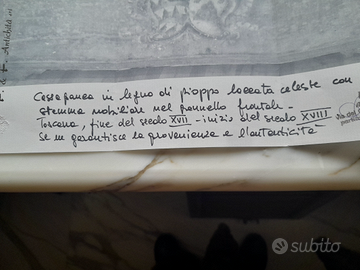 Antichità
Cassapanca in legno di pioppo laccata celeste con
stemma nobiliare nel pannello frontale -
Toscana, fine del secolo XVII - inizio del secolo XVIII
Se ne garantisce la provenienza e l'autenticità
subito